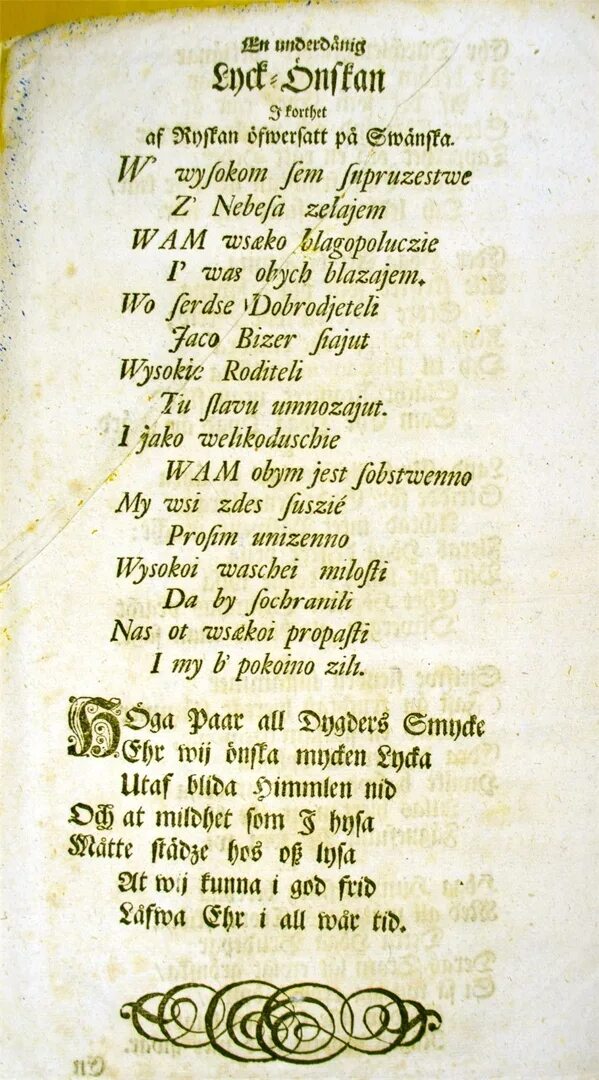 En underdånig
Lyck-Önskan
I korthet
af Ryskan öfwersatt på Swänska.
W' wysokom sem supruzestwe
Z' Nebesa zelajem
WAM wsæko blagopoluczie
I' was obych blazajem.
Wo serdse Dobrodjeteli
Jaco Bizer siajut
Wysokie Roditeli
Tu slavu umnozajut.
I jako welikoduschie
WAM obym jest sobstwenno
My wsi zdes suszié
Prosim unizenno
Wysokoi waschei milosti
Da by sochranili
Nas ot wsækoi propasti
I my b' pokoino zili.
HÖga Paar all Dygders Smycke
Ehr wij önska mycken Lycka
Utaf blida Himmlen nid
Och at mildhet som I hysa
Måtte städze hos oß lysa
At wij kunna i god frid
Låfwa Ehr i all wår tid.